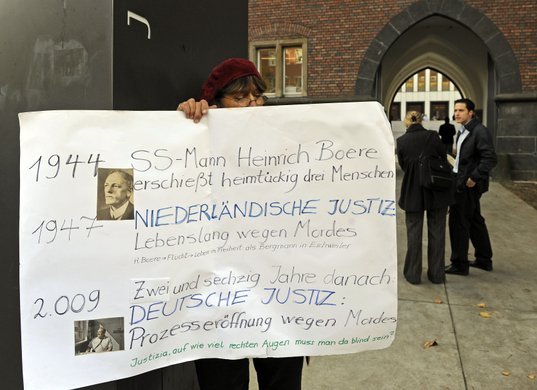 1944 SS-Mann Heinrich Boere
erschießt heimtückig drei Menschen
NIEDERLÄNDISCHE JUSTIZ
1947 Lebenslang wegen Mordes
H. Boere → Flucht → Leben in Freiheit als Bergmann in Eschweiler
Zwei und sechzig Jahre danach:
2.009 DEUTSCHE JUSTIZ:
Prozesseröffnung wegen Mordes
Justizia, auf wie viel rechten Augen muss man da blind sein?